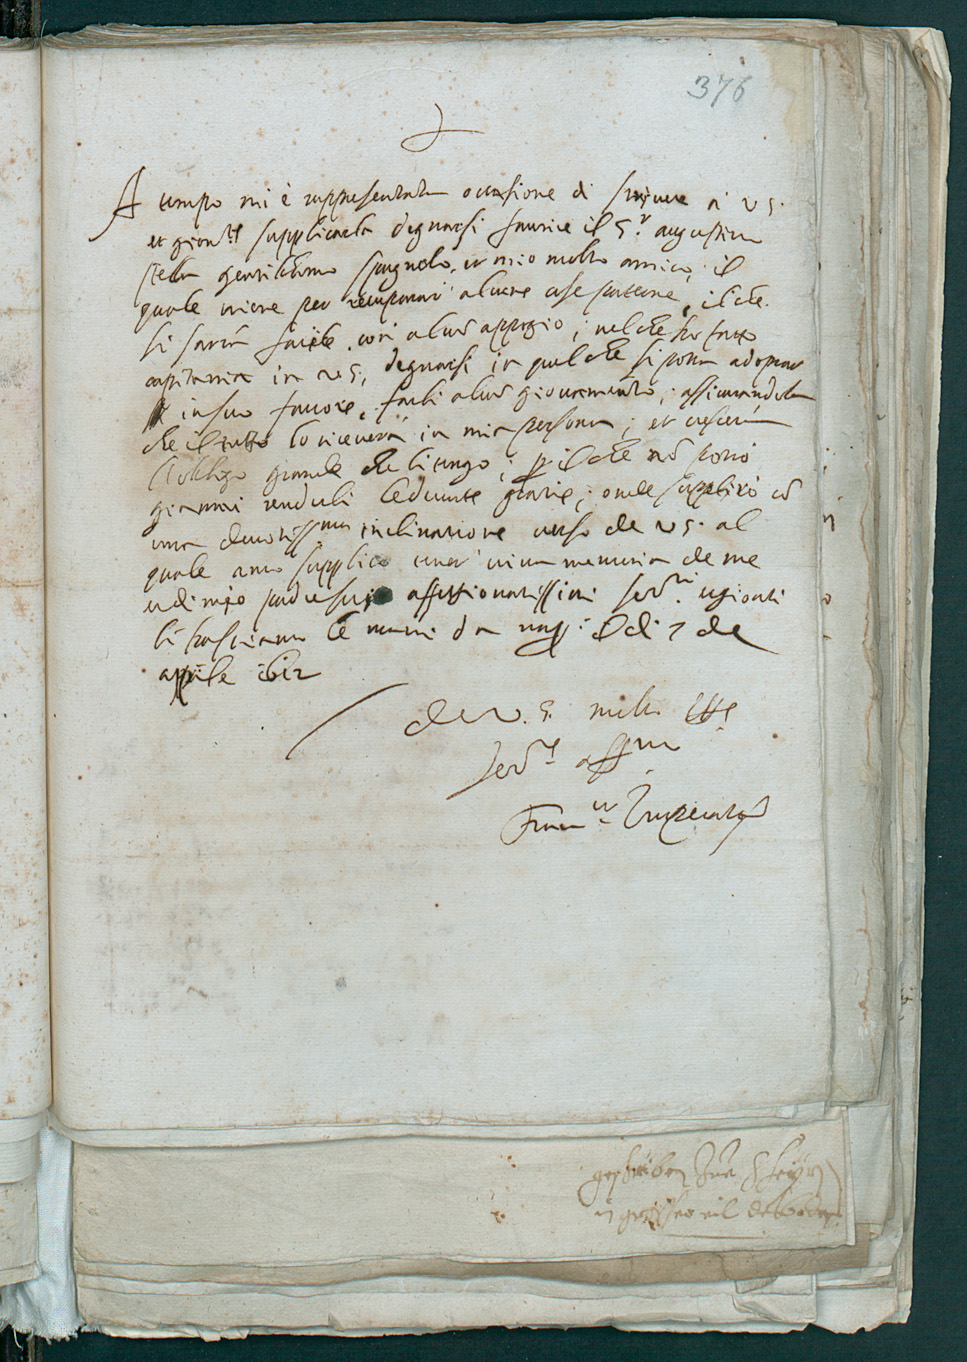 376
A tempo mi è rappresentata occasione di scrivere a V S.
et gionte supplicarla degnarsi favorire il S.r augustino
stella gentilissimo spagnolo, et mio molto amico; il
quale viene per temporar alcune cose, il che
li sarà facile con alcun appogio; nel che ho fatto
in V S, degnarsi in quel che si potrà adoprar
in suo favore, farli alcun giovamento; assicurandola
che il tutto lo riceverà in mia persona; et crescerà
l'obligo grande che li tengo; per il che nō potrò
giamai renderli le devute gratie; onde supplirò cō
una devotissima inclinatione verso de V S. al
quale anco supplico tener viva memoria de me
et di mio padre suoi affettionatissimi ser.ri et gionti
li basciamo le mani da nap. il di 7 de
aprile 1612
de V. S. molto Ill.e
ser.re aff.mo
Fran.co Imperato
geschriben